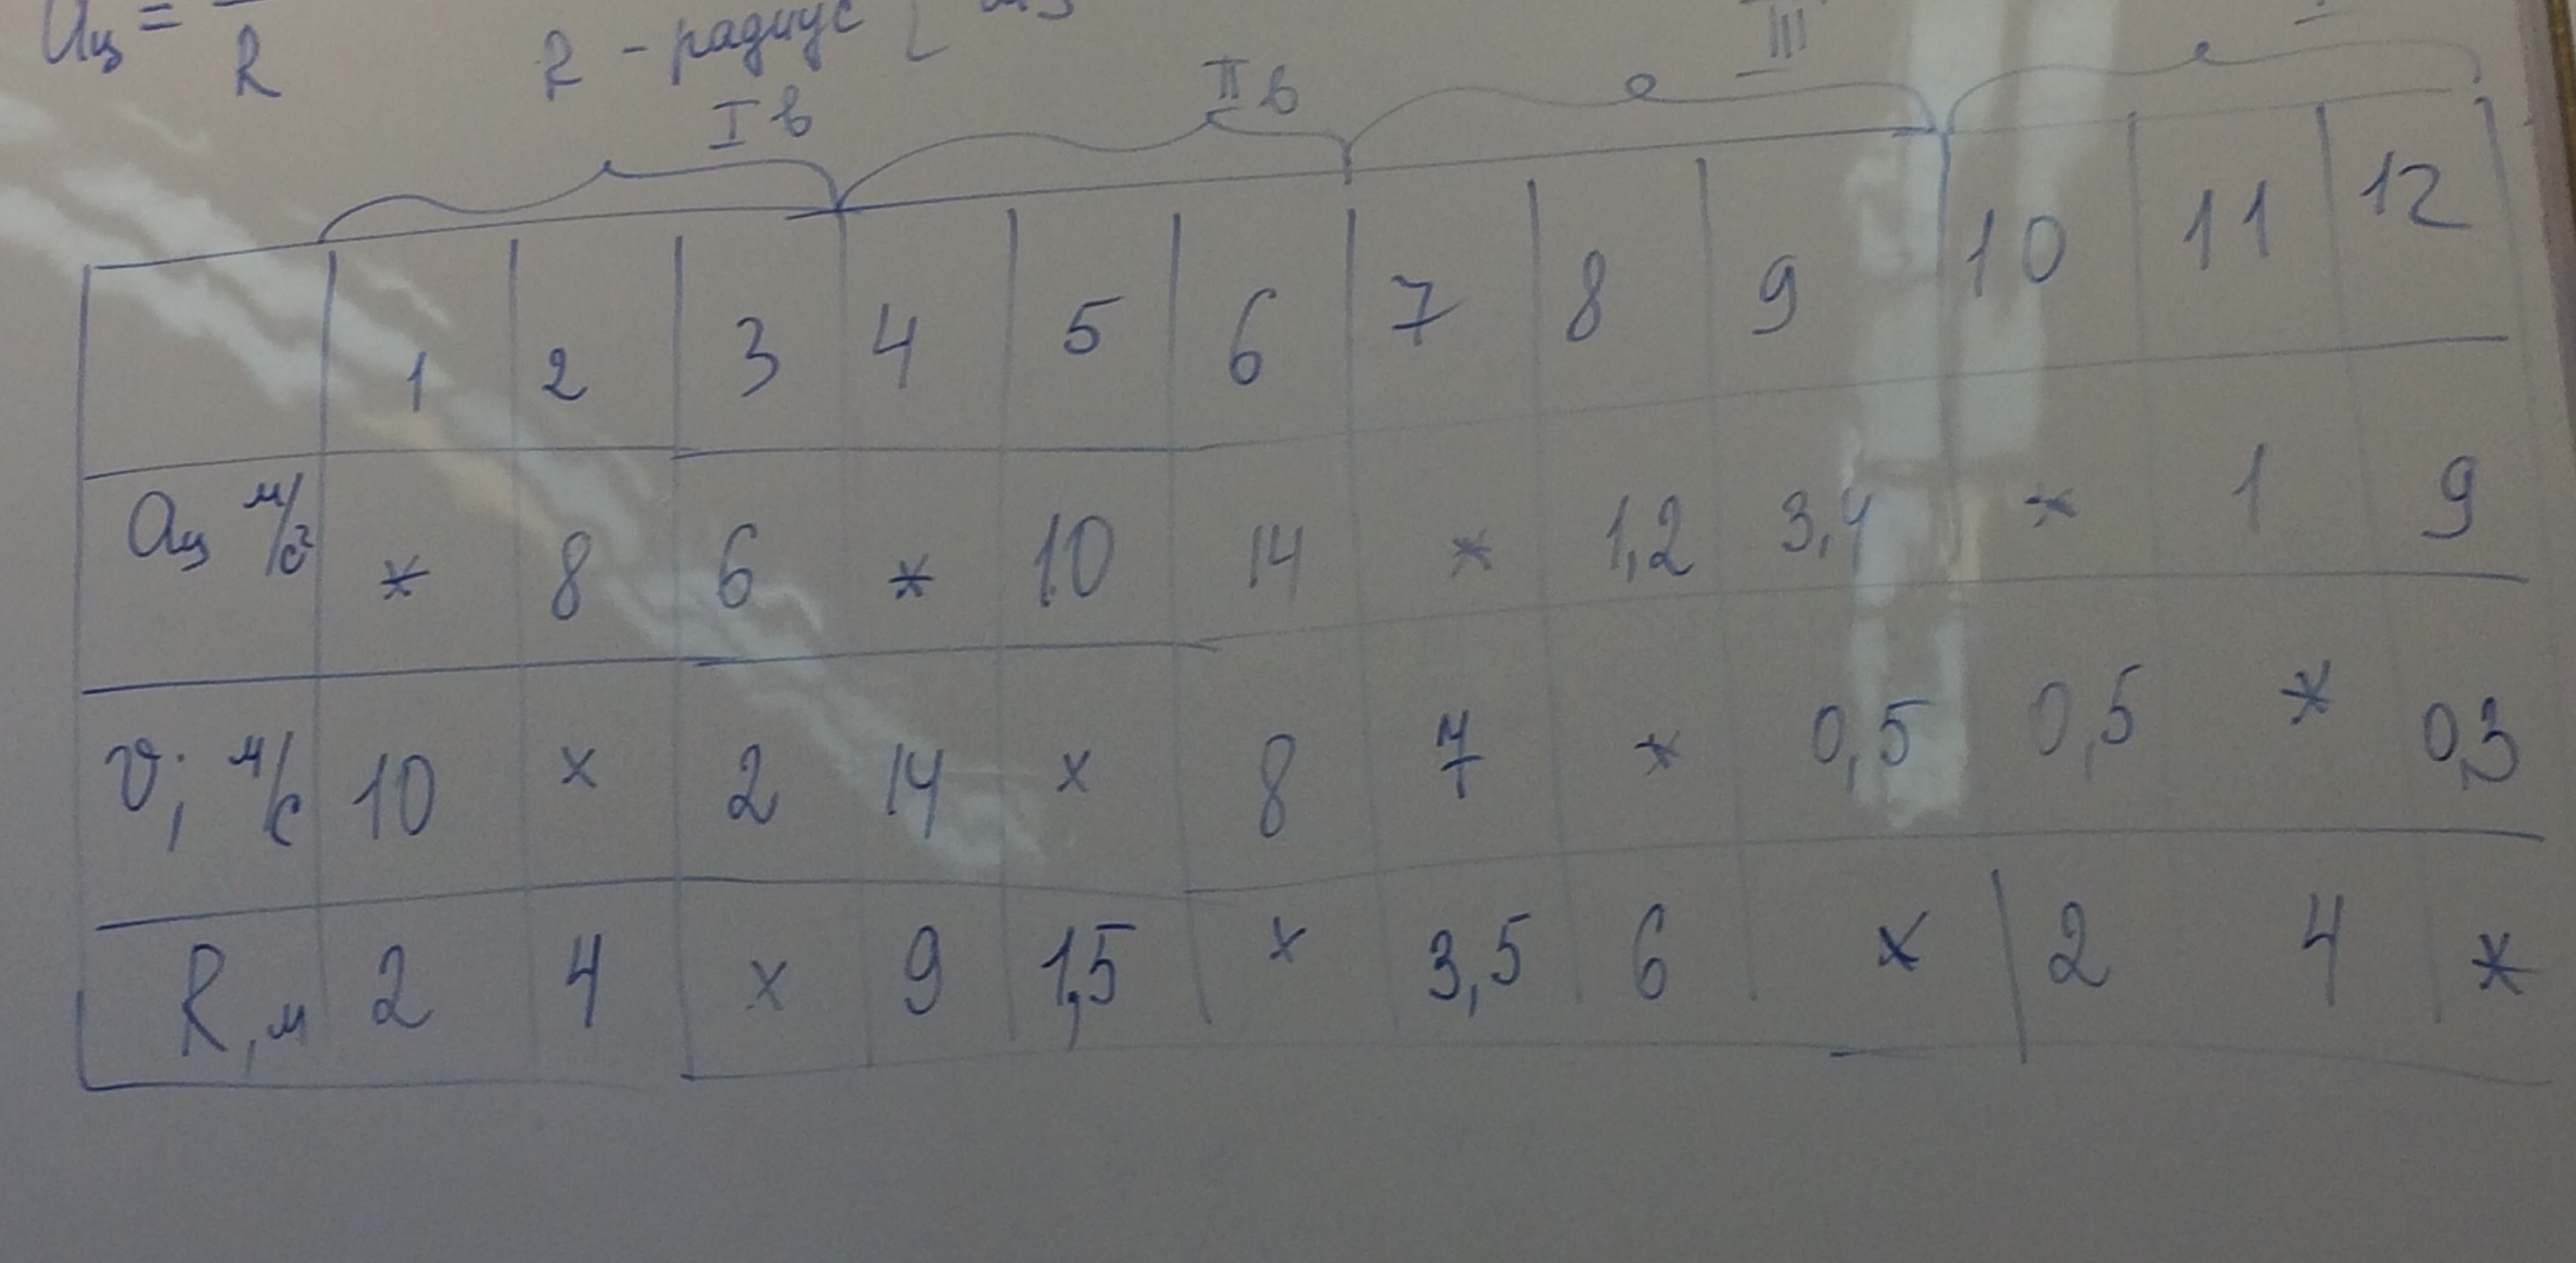 aц = R
R - радиус
I в II в III
1 2 3 4 5 6 7 8 9 10 11 12
aц м/с² * 8 6 * 10 14 * 1,2 3,4 * 1 9
v; м/с 10 x 2 14 x 8 7 * 0,5 0,5 * 0,3
R, м 2 4 x 9 1,5 x 3,5 6 x 2 4 *